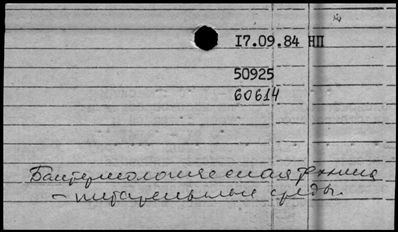 17.09.84 НП
50925
60614
Бактериологическая техника
– питательные среды.